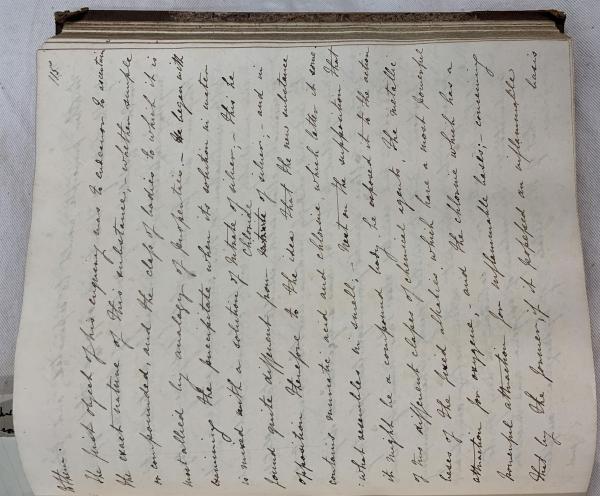 115
The first object of his enquiry was to endeavour to ascertain
the exact nature of this substance, whether simple
or compounded, and the class of bodies to which it is
most allied by analogy of properties. – He began with
examining the precipitate when its solution in water
is mixed with a solution of nitrate of silver; – this he
found quite different from chloride of silver; – and in
opposition therefore to the idea that the new substance
contains muriatic acid and chlorine which latter it some
what resembles in smell; – Next on the supposition that
it might be a compound body, he exposed it to the action
of two different classes of chemical agents. The metallic
bases of the fixed alkalies which have a most powerful
attraction for oxygene, – and the chlorine which has a
powerful attraction for inflammable bases; – conceiving
that by the former, if it possessed an inflammable
basis